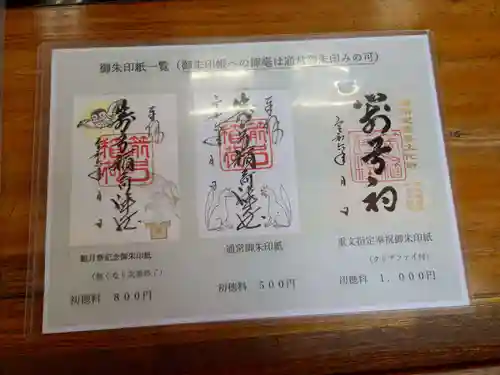 御朱印紙一覧（御朱印帳への揮毫は通常御朱印のみの可）
奉拝
箭弓稲荷神社
奉拝
箭弓稲荷神社
箭弓社
令和六年 月 日
観月祭記念御朱印紙
（無くなり次第終了）
初穂料 800円
通常御朱印紙
初穂料 500円
重文指定奉祝御朱印紙
（クリアファイル付）
初穂料 1,000円